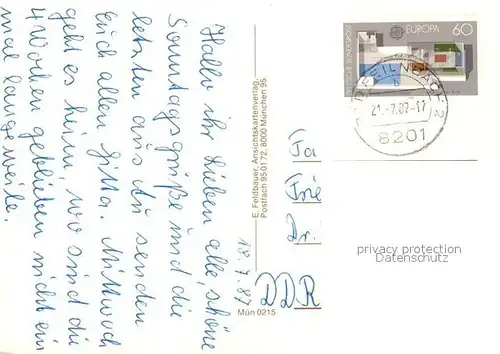 Hallo ihr Lieben alle, schöne
Sonntagsgrüße und die
letzten aus A. senden
Euch allen Gitta. Mittwoch
geht es heim, wo sind die
4 Wochen geblieben nicht ein
mal langeweile.
18.7.87
E. Feldbauer, Ansichtskartenverlag,
Postfach 950172, 8000 München 95
Mün 0215
DEUTSCHE BUNDESPOST
EUROPA 60
b
21.-7.87-17
8201
Fa
Frie
Dr.
DDR
privacy protection
Datenschutz